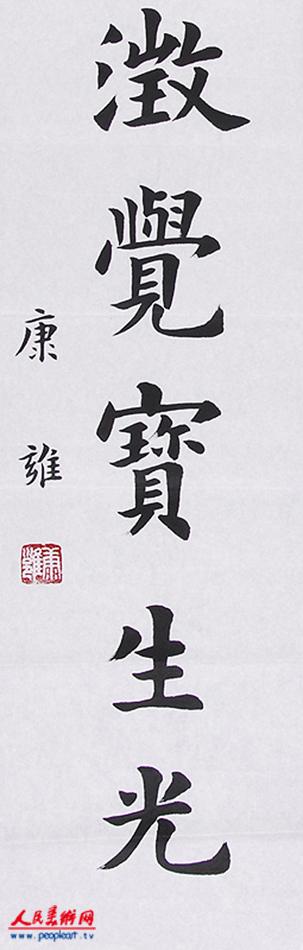 澂覺寶生光
康雍
康雍
人民美術网
www.peopleart.tv